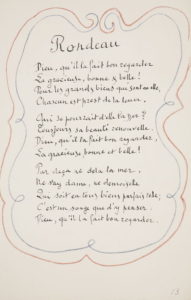 Rondeau
Dieu, qu'il la fait bon regarder
La gracieuse, bonne & belle !
Pour les grands biens qui sont en elle,
Chacun est prest de la louer.
Qui se pourrait d'elle lasser ?
Tousjours sa beauté renouvelle.
Dieu, qu'il la fait bon regarder,
La gracieuse, bonne et belle !
Par deça ne dela la mer,
Ne sçay dame, ne demoiselle
Qui soit en tous biens parfais telle ;
C'est un songe que d'y penser.
Dieu, qu'il la fait bon regarder.